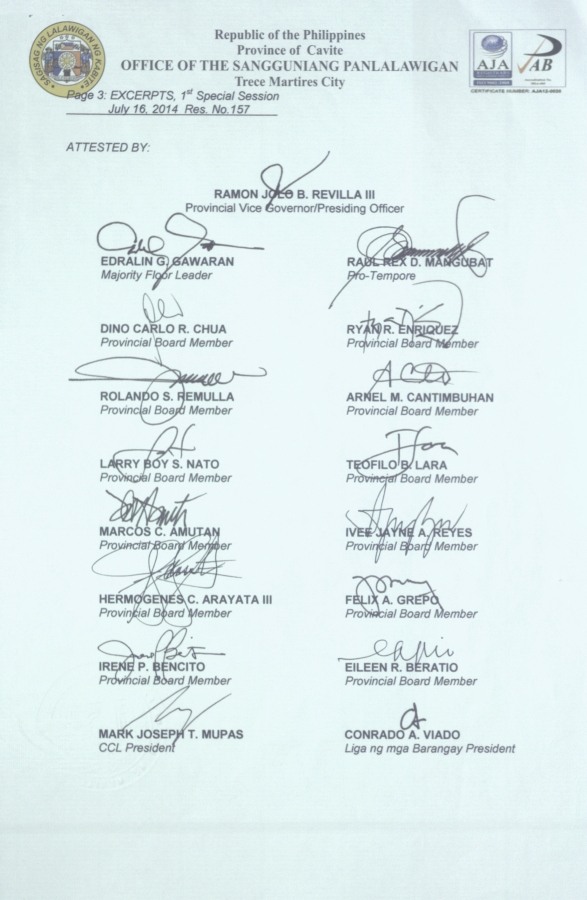 Republic of the Philippines
Province of Cavite
OFFICE OF THE SANGGUNIANG PANLALAWIGAN
Trece Martires City
SAGISAG NG LALAWIGAN NG KABITE
AJA
JAB
CERTIFICATE NUMBER: AJA12-0026
Page 3: EXCERPTS, 1st Special Session
July 16, 2014 Res. No.157
ATTESTED BY:
RAMON JOLO B. REVILLA III
Provincial Vice Governor/Presiding Officer
EDRALIN G. GAWARAN
Majority Floor Leader
RAUL REX D. MANGUBAT
Pro-Tempore
DINO CARLO R. CHUA
Provincial Board Member
RYAN R. ENRIQUEZ
Provincial Board Member
ROLANDO S. REMULLA
Provincial Board Member
ARNEL M. CANTIMBUHAN
Provincial Board Member
LARRY BOY S. NATO
Provincial Board Member
TEOFILO B. LARA
Provincial Board Member
MARCOS C. AMUTAN
Provincial Board Member
IVEE JAYNE A. REYES
Provincial Board Member
HERMOGENES C. ARAYATA III
Provincial Board Member
FELIX A. GREPO
Provincial Board Member
IRENE P. BENCITO
Provincial Board Member
EILEEN R. BERATIO
Provincial Board Member
MARK JOSEPH T. MUPAS
CCL President
CONRADO A. VIADO
Liga ng mga Barangay President